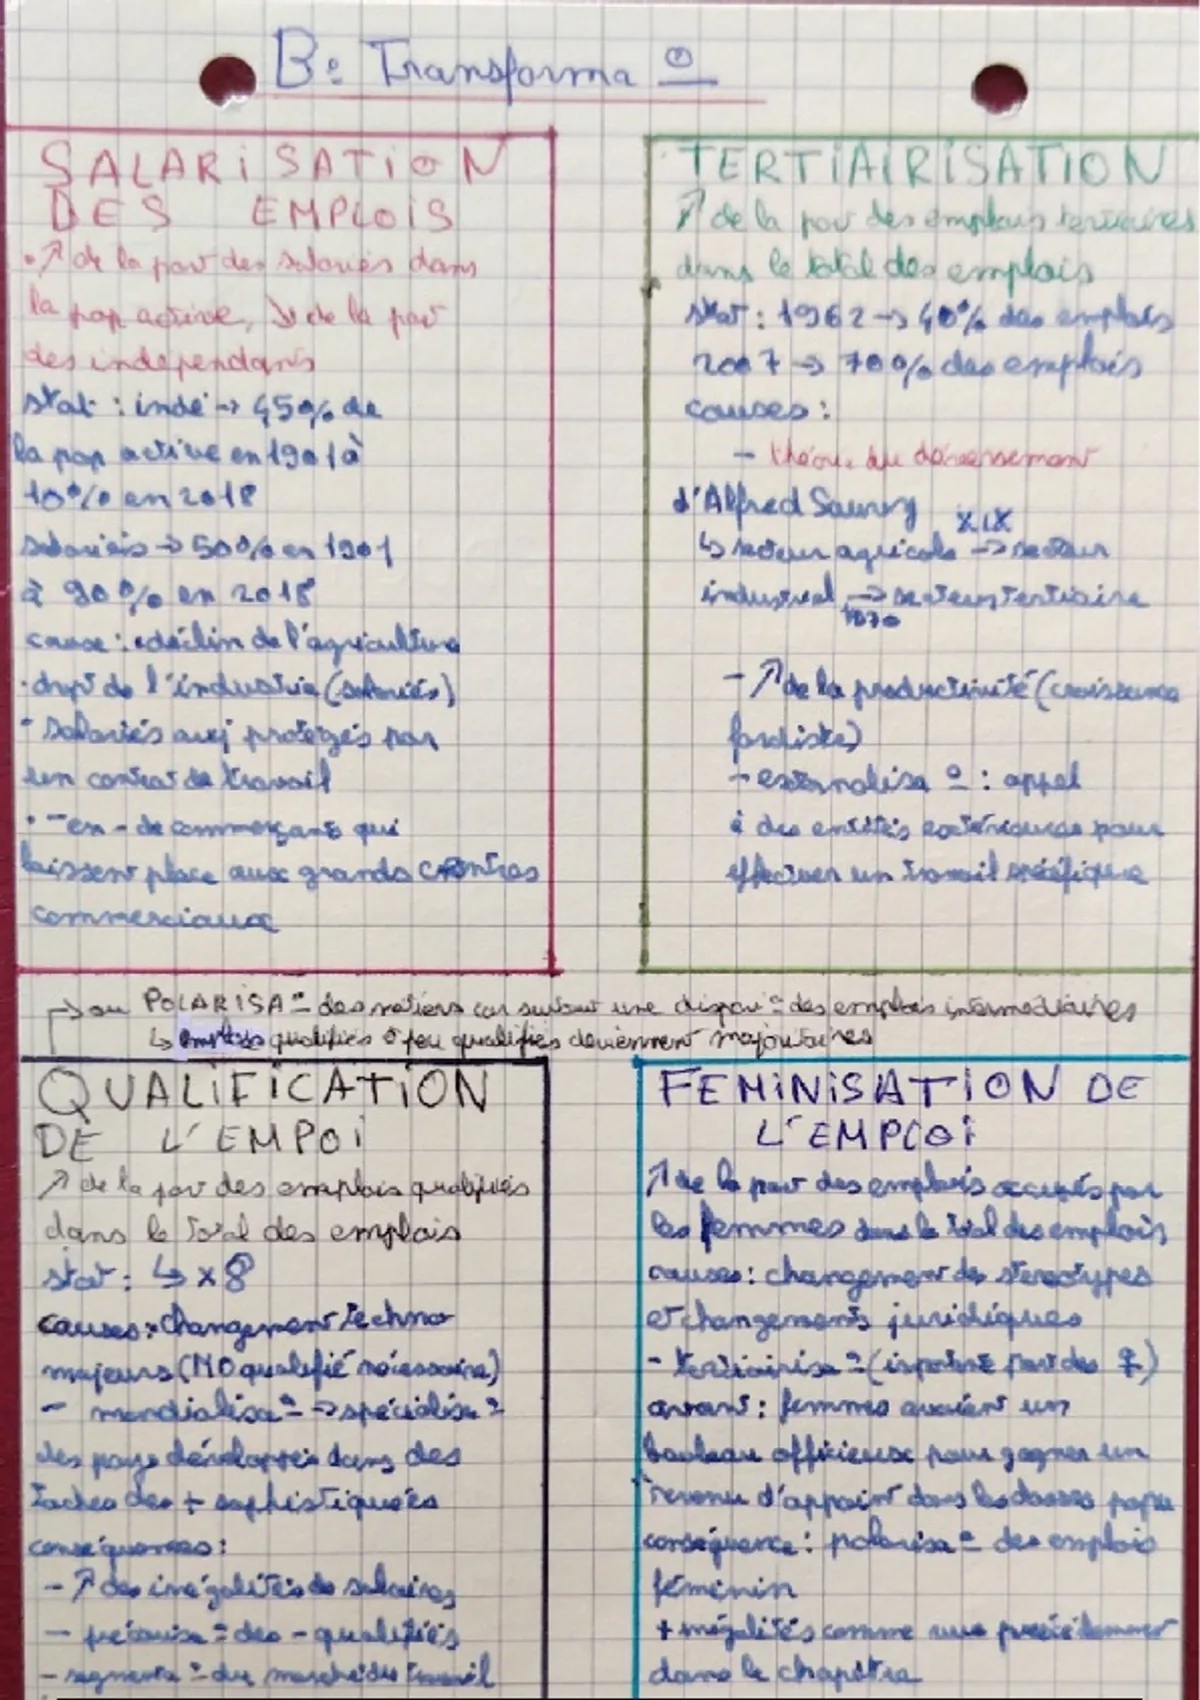 B: Transforma °
SALARiSATiON
DES EMPLOiS
• ↗ de la part des salariés dans
la pop active, ↘ de la part
des indépendants
stat : indé → 45% de
la pop active en 1901 à
10% en 2018
salariés → 50% en 1901
à 90% en 2018
cause : • déclin de l'agriculture
• dvpt de l'industrie (salariés)
• salariés auj protégés par
un contrat de travail
• - en - de commerçants qui
laissent place aux grands centres
commerciaux
TERTiAiRiSATiON
↗ de la part des emplois tertiaires
dans le total des emplois
stat : 1962 → 40% des emplois
2007 → 70% des emplois
causes :
- théorie du déversement
d'Alfred Sauvy
XIX
↳ secteur agricole → secteur
industriel → secteur tertiaire
1970
- ↗ de la productivité (croissance
fordiste)
- externalisa ° : appel
à des entités extérieures pour
effectuer un travail spécifique
→ ou POLARISA° des métiers car surtout une dispari° des emplois intermédiaires
↳ emplois qualifiés & peu qualifiés deviennent majoritaires
QUALiFiCATiON
DE L'EMPOi
↗ de la part des emplois qualifiés
dans le total des emplois
stat : ↳ x 8
causes : changement techno
majeurs (MO qualifié nécessaire)
- mondialisa° → spécialisa°
des pays développés dans des
taches des + sophistiquées
conséquences :
- ↗ des inégalités de salaires
- précarisa° des - qualifiés
- segmenta° du marché du travail
FEMiNiSATiON DE
L'EMPLOi
↗ de la part des emplois occupés par
les femmes dans le total des emplois
causes : changement des stereotypes
et changements juridiques
- tertiairisa° (importante part des ♀)
avant : femmes avaient un
bouleau officieux pour gagner un
revenu d'appoint dans les classes popu
conséquence : polarisa° des emplois
féminin
+ inégalités comme vus précédemment
dans le chapitre